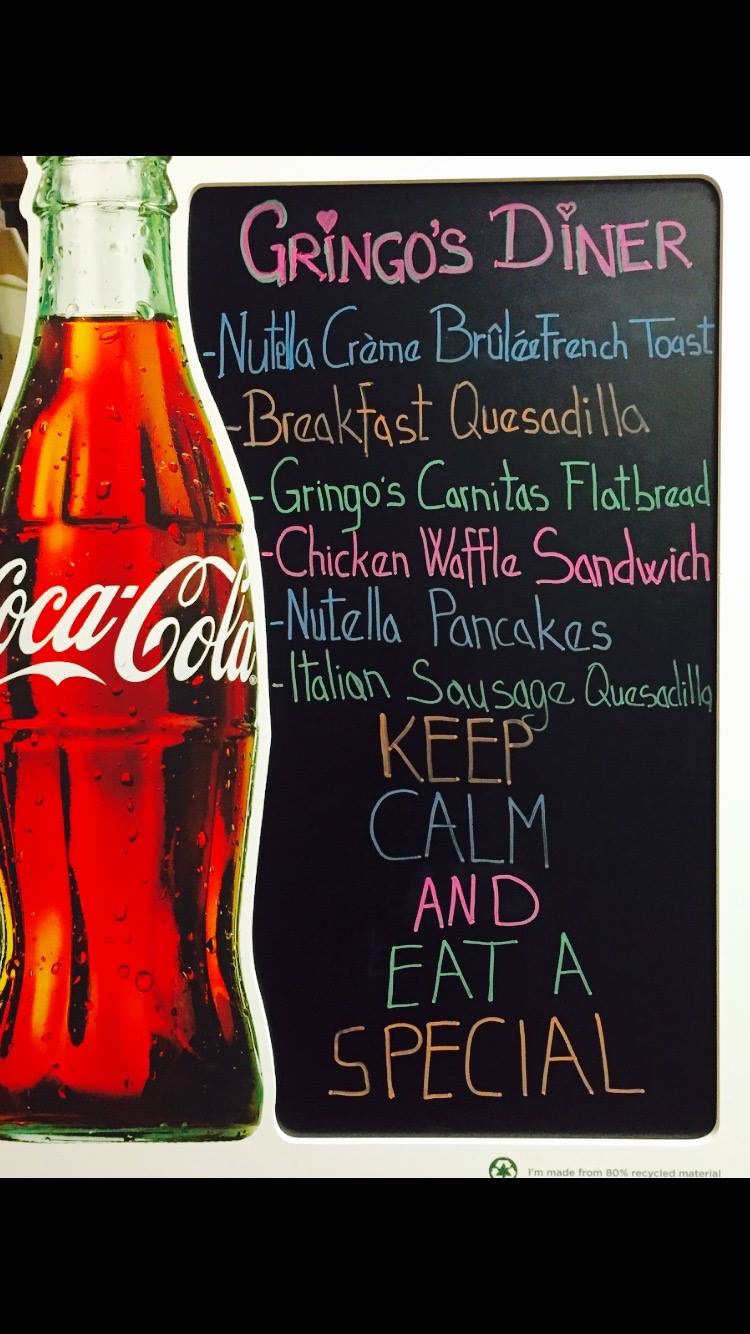 GRINGO'S DINER
-Nutella Crème Brûlée French Toast
-Breakfast Quesadilla
-Gringo's Carnitas Flatbread
-Chicken Waffle Sandwich
-Nutella Pancakes
-Italian Sausage Quesadilla
KEEP
CALM
AND
EAT A
SPECIAL
Coca-Cola
I'm made from 80% recycled material